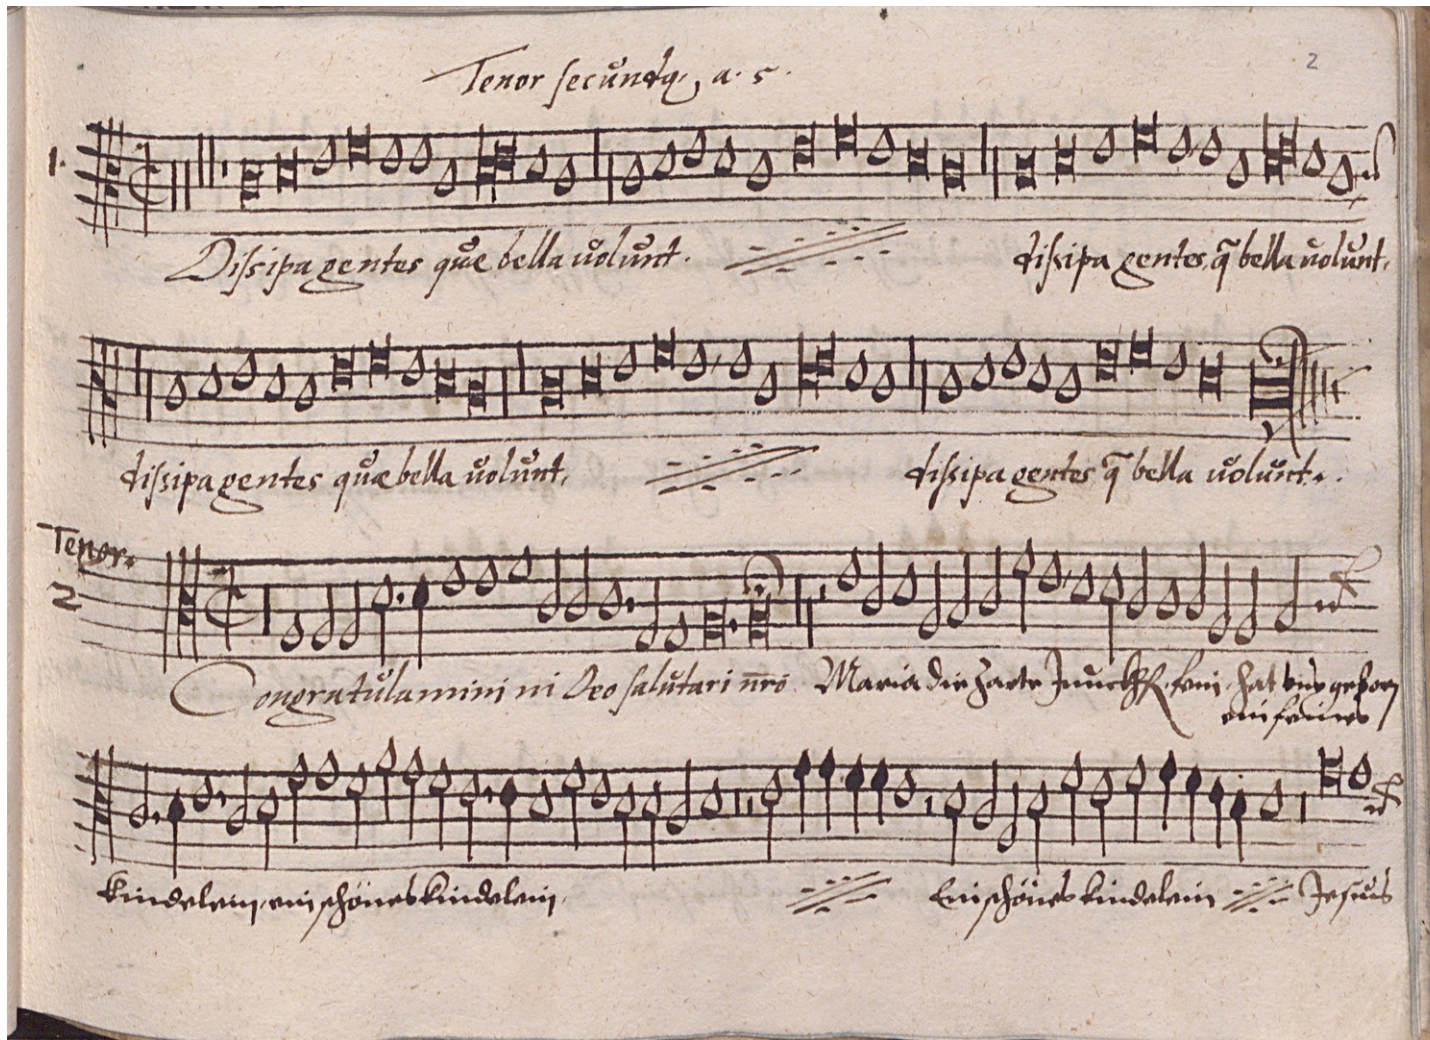 2
Tenor secundq, a. 5.
1.
Dissipa gentes quae bella uolunt. dissipa gentes q̃ bella uolunt,
dissipa gentes quae bella uolunt, dissipa gentes q̃ bella uolunt.
Tenor.
2
Congratulamini ni Deo salutari nr̄o. Maria die zarte Junckfr. fein. hat uns geborn
ein feines
kindelein, ein schönes kindelein, Ein schönes kindelein Jesus